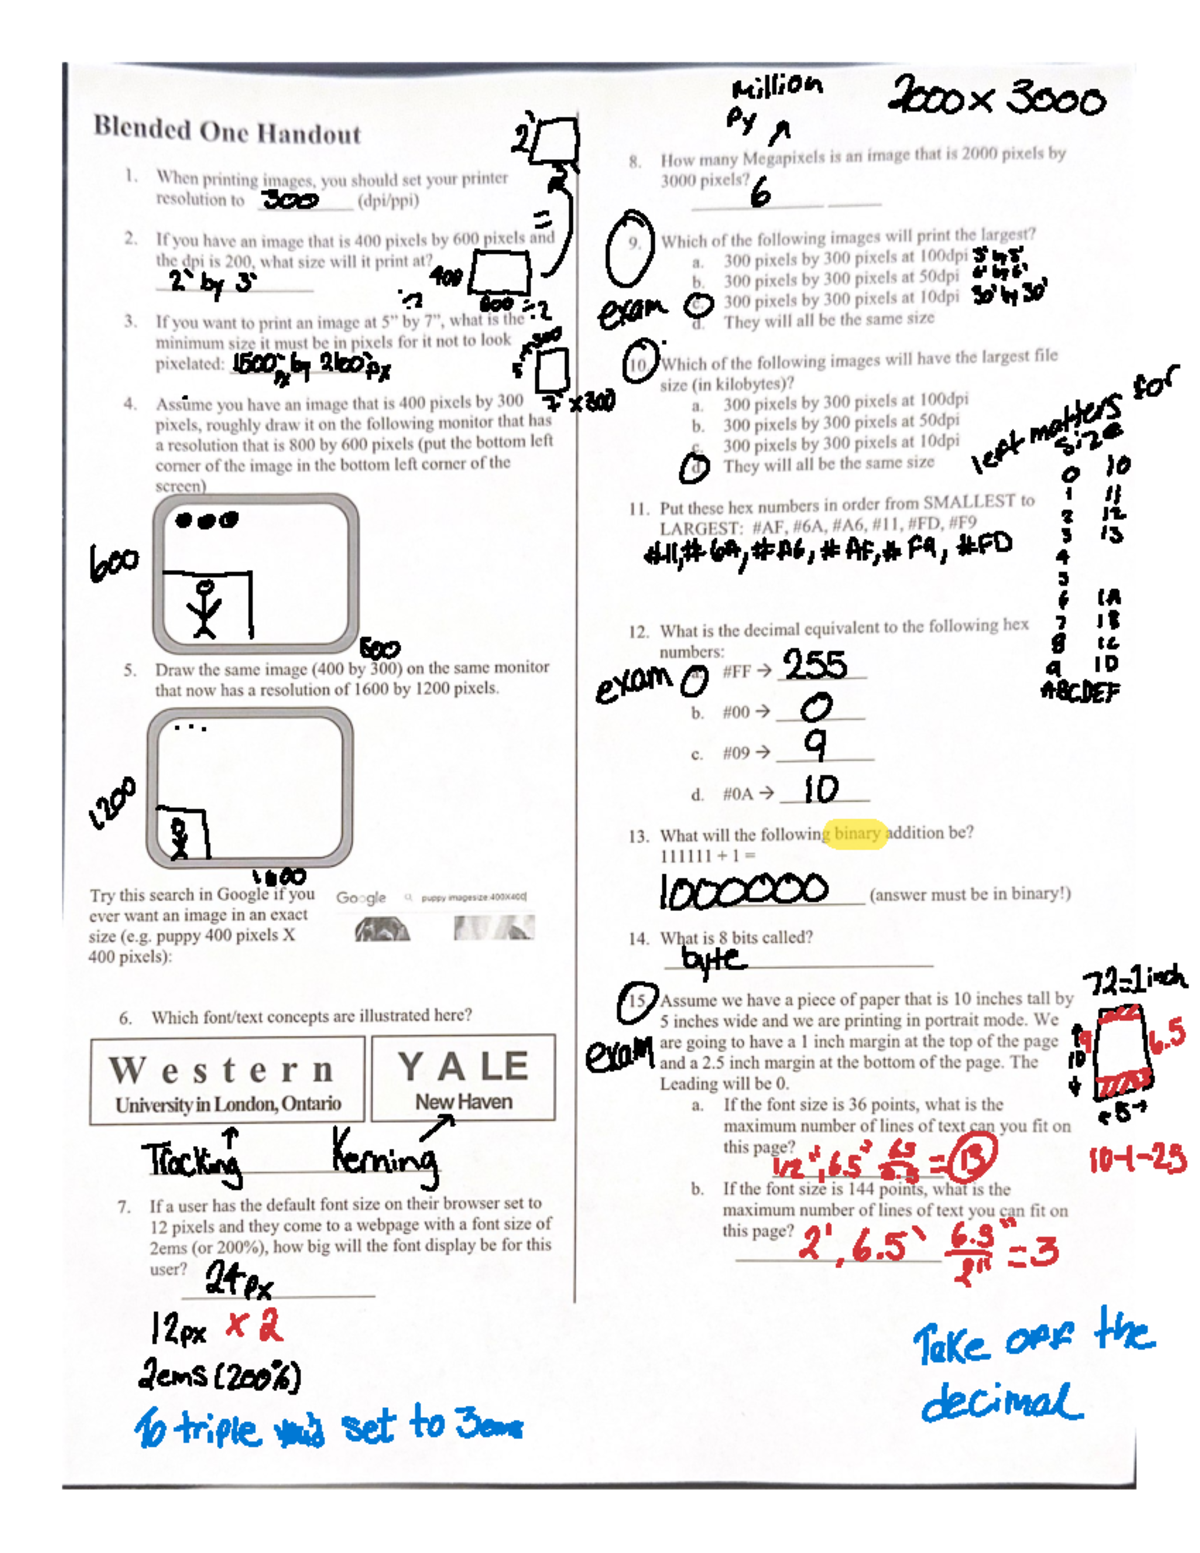 Blended One Handout
1. When printing images, you should set your printer
resolution to 300 (dpi/ppi)
2"
2. If you have an image that is 400 pixels by 600 pixels and
the dpi is 200, what size will it print at?
2" by 3"
=
400
600 ÷2
÷2
3. If you want to print an image at 5" by 7", what is the
minimum size it must be in pixels for it not to look
pixelated: 1500px by 2100px
x300
5"
7" x300
4. Assume you have an image that is 400 pixels by 300
pixels, roughly draw it on the following monitor that has
a resolution that is 800 by 600 pixels (put the bottom left
corner of the image in the bottom left corner of the
screen)
600
800
5. Draw the same image (400 by 300) on the same monitor
that now has a resolution of 1600 by 1200 pixels.
1200
1600
Try this search in Google if you
ever want an image in an exact
size (e.g. puppy 400 pixels X
400 pixels):
Google puppy imagesize:400x400
6. Which font/text concepts are illustrated here?
Western
University in London, Ontario
YALE
New Haven
Tracking Kerning
7. If a user has the default font size on their browser set to
12 pixels and they come to a webpage with a font size of
2ems (or 200%), how big will the font display be for this
user? 24px
12px x 2
2ems (200%)
To triple set to 3ems
Million
Py
2000 x 3000
8. How many Megapixels is an image that is 2000 pixels by
3000 pixels?
6
9. Which of the following images will print the largest?
a. 300 pixels by 300 pixels at 100dpi 3" by 3"
b. 300 pixels by 300 pixels at 50dpi 6" by 6"
exam
c. 300 pixels by 300 pixels at 10dpi 30" by 30"
d. They will all be the same size
10. Which of the following images will have the largest file
size (in kilobytes)?
a. 300 pixels by 300 pixels at 100dpi
b. 300 pixels by 300 pixels at 50dpi
c. 300 pixels by 300 pixels at 10dpi
d. They will all be the same size
left matters for
size
11. Put these hex numbers in order from SMALLEST to
LARGEST: #AF, #6A, #A6, #11, #FD, #F9
#11, #6A, #A6, #AF, #F9, #FD
0 10
1 11
2 12
3 13
4
5
6 1A
7 1B
8 1C
9 1D
ABCDEF
12. What is the decimal equivalent to the following hex
numbers:
exam
a. #FF → 255
b. #00 → 0
c. #09 → 9
d. #0A → 10
13. What will the following binary addition be?
111111 + 1 =
1000000 (answer must be in binary!)
14. What is 8 bits called?
byte
15. Assume we have a piece of paper that is 10 inches tall by
5 inches wide and we are printing in portrait mode. We
are going to have a 1 inch margin at the top of the page
and a 2.5 inch margin at the bottom of the page. The
Leading will be 0.
exam
72=1inch
10
6.5
5
10-1-2.5
a. If the font size is 36 points, what is the
maximum number of lines of text can you fit on
this page?
1/2", 6.5" 6.5/0.5 = 13
b. If the font size is 144 points, what is the
maximum number of lines of text you can fit on
this page? 2", 6.5" 6.5"/2" = 3
Take off the
decimal